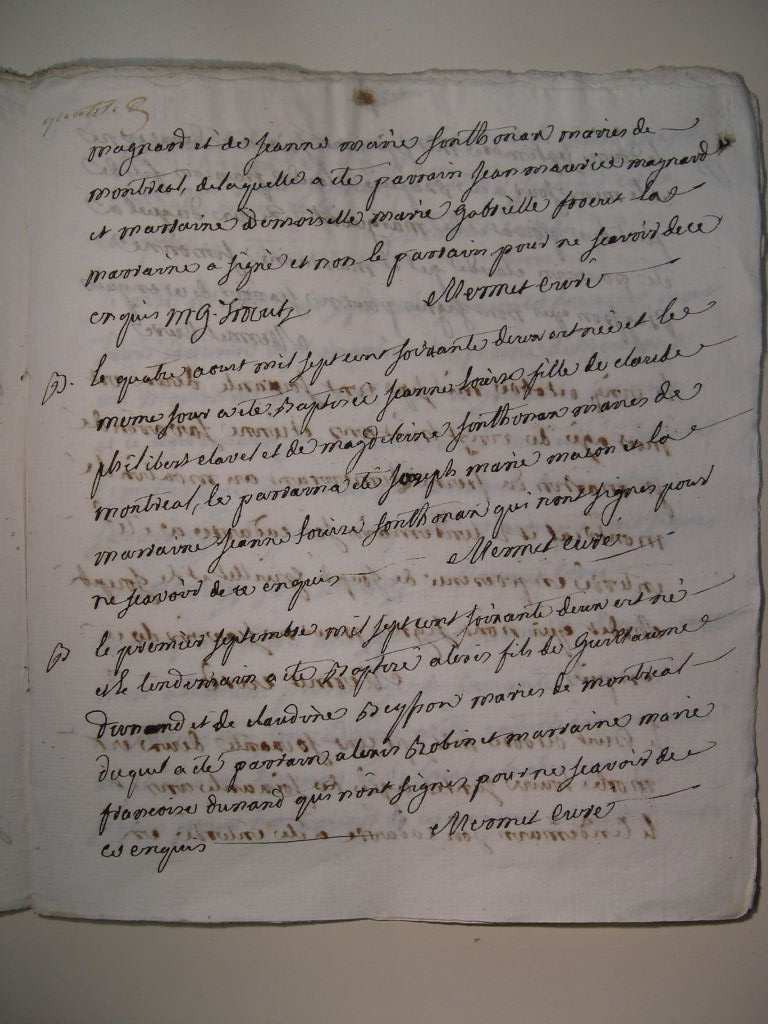 magnard et de jeanne marie sonthonax mariés de
montreal, de laquelle a eté parrain jean maurice magnard
et marraine Demoiselle marie gabrielle la
marraine a signé et non le parrain pour ne sçavoir de ce
enquis M G. Mermet curé
B. le quatre aoust mil sept cent soixante deux est née et le
meme jour a eté Baptisée jeanne louise fille de claude
philibert clavel et de magdeleine sonthonax mariés de
montreal, le parrain a eté joseph marie macon et la
marraine jeanne louise sonthonax qui n'ont signés pour
ne sçavoir de ce enquis Mermet curé
B le premier septembre mil sept cent soixante deux est né
et le lendemain a eté Baptisé alexis fils de Guillaume
Dunand et de claudine Beysson mariés de montréal
duquel a eté parrain alexis Robin et marraine marie
francoise dunand qui n'ont signés pour ne sçavoir de
ce enquis Mermet curé